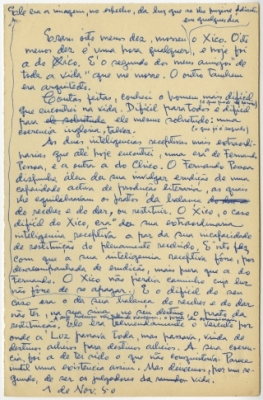 Ele era a imagem, no espelho, da luz que se lhe punha
em qualquer dia
Eram oito menos dez, morreu o Xico. Oito
menos dez é uma hora qualquer, e hoje foi
a do Xico. E' o segundo dos meus amigos de
toda a vida que me morre. O outro tambem
era arquitecto.
Contas feitas, conheci o homem mais difícil
que encontrei na vida. Difícil para todos e difícil
para ele mesmo sobretudo: uma
herencia inglória, talvez.
As duas inteligencias receptivas mais extraordi-
narias que até hoje encontrei, uma era de Fernando
Pessoa, e a outra a do Chico. O Fernando Pessoa
dispunha, alem da sua invulgar erudição de uma
capacidade activa de produção literaria, as quaes
lhe equilibravam os pratos da balança
de recebes e do dar, ou restituir. O Xico, o caso
difícil do Xico, era da sua extraordinaria
inteligencia receptiva a par da sua incapacidade
de restituição do plenamente recebido. E isto fez
com que a sua inteligencia receptiva fôsse, por
desacompanhada de erudição, mais pura que a do
Fernando. O Xico não perdia caminho cuja luz
não fôsse de se apagar. E o difícil do seu
caso era o da sua balança do recebes e do dar
não ter, na sua mão ou seu destino, o prato da
restituição. Ele era tremendamente o veículo por
onde a Luz passava toda, mas passava, vinda de
destinos alheios para destinos alheios. A sua essen-
cia, foi a de ter sido o que não conquistaria. Parece
inutil uma existencia assim. Mas deixemos, por um se-
gundo, de ser os julgadores da mundos vida.
1 de Nov. 50